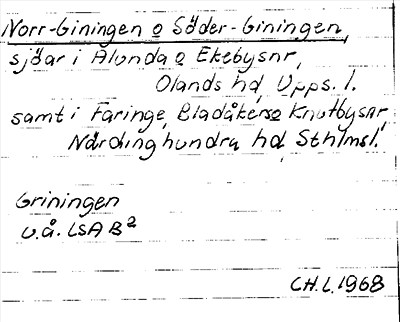 Norr-Giningen o Söder-Giningen,
sjöar i Alunda o Ekebysnr,
Olands hd, Upps. l.
samt i Faringe, Bladåkers o Knutbysnr,
Närdinghundra hd, Sthlms l.
Griningen
u.å. LSA B²
CH.L. 1968